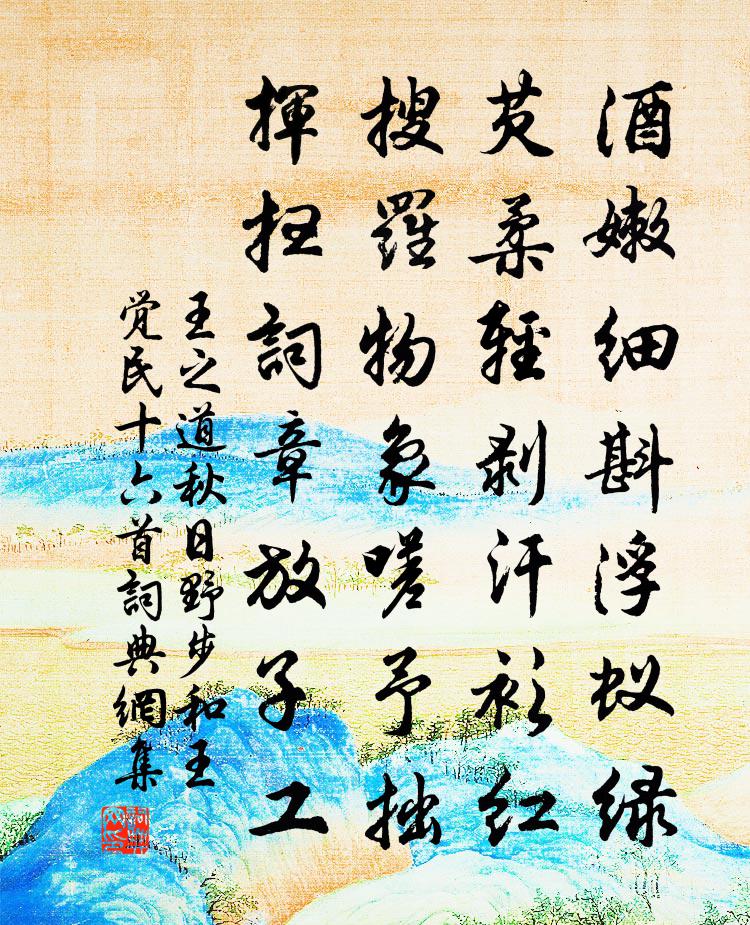 酒嫩细斟浮蚁绿
芡柔輕剥汗衫红
搜羅物象嗟予拙
揮扫詞章放子工
王之道秋日野步和王
觉民十六首詞典網集